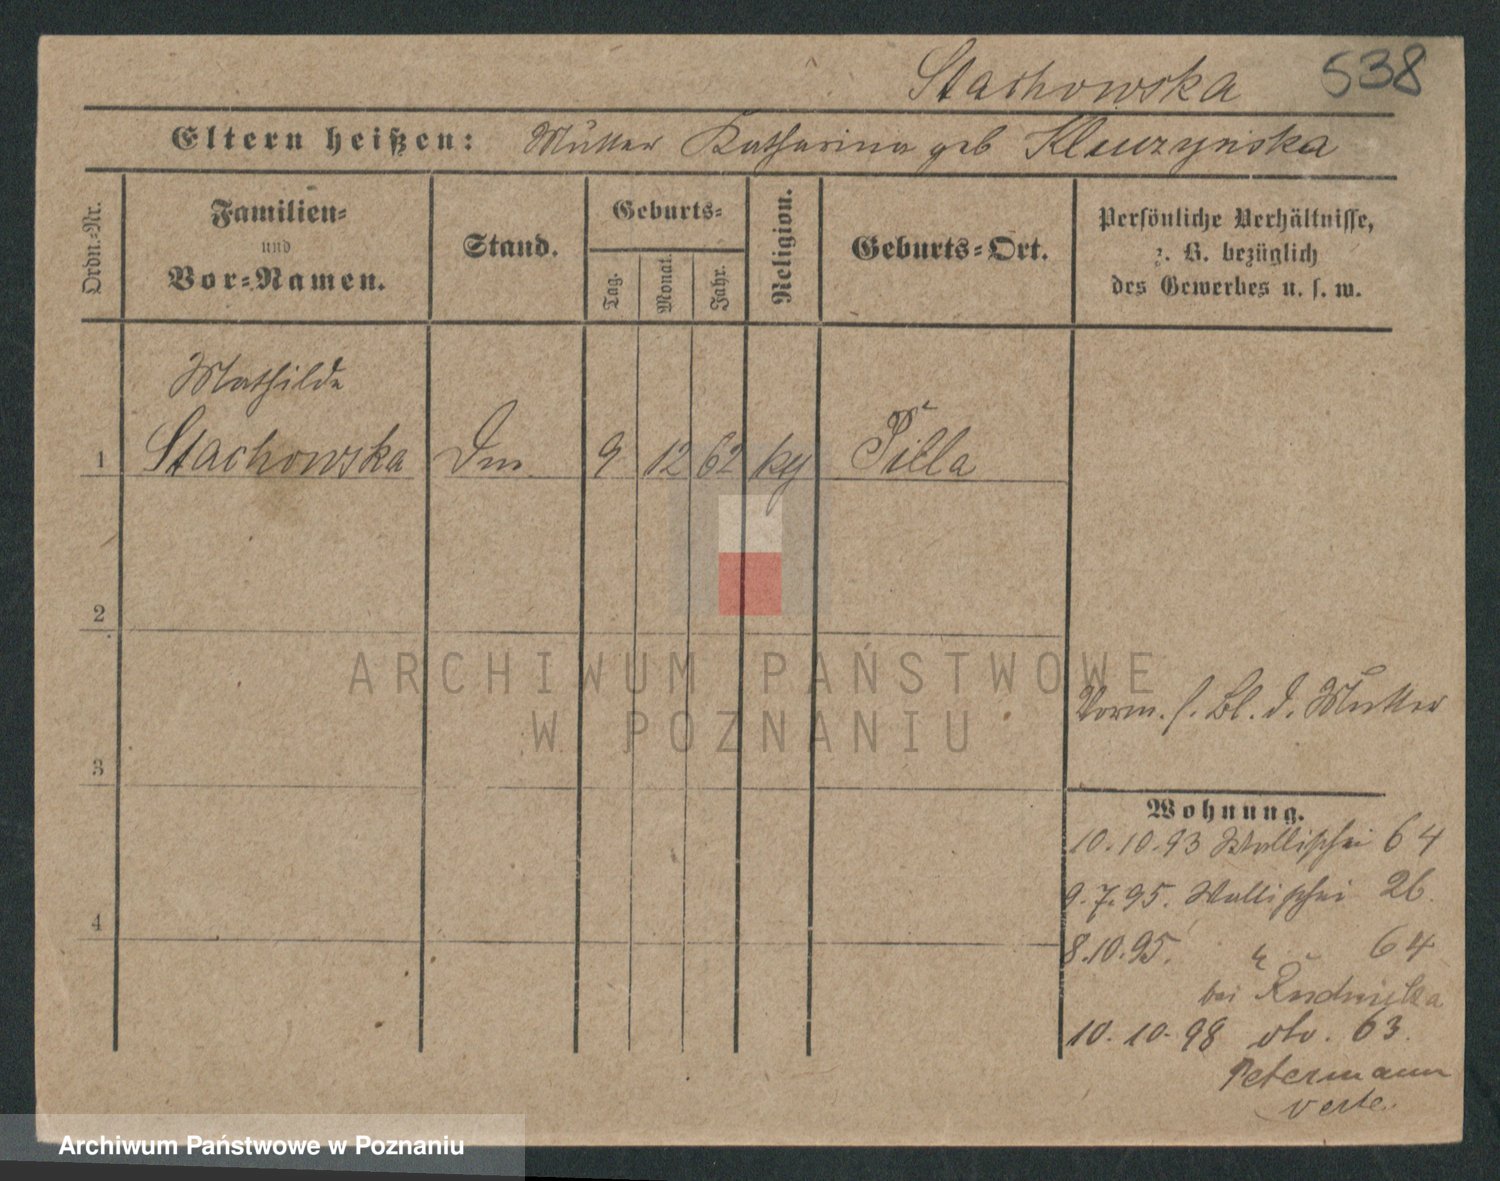 538
Stachowska
Eltern heißen: Mutter Katharina geb Kluczyńska
Ordn.-Nr.
Familien-
und
Vor-Namen.
Stand.
Geburts-
Tag.
Monat.
Jahr.
Religion.
Geburts-Ort.
Persönliche Verhältnisse,
z. B. bezüglich
des Gewerbes u. s. w.
Mathilde
1 Stachowska 9 12 62 Pilla
2
3
4
Vorm. s. Bl. d. Mutter
Wohnung.
10.10.93 Wallischei 64
9.7.95. Wallischei 26.
8.10.95. " 64
bei Rudnicka
10.10.98 dto. 63.
Petermann
verte.
ARCHIWUM PAŃSTWOWE
W POZNANIU
Archiwum Państwowe w Poznaniu